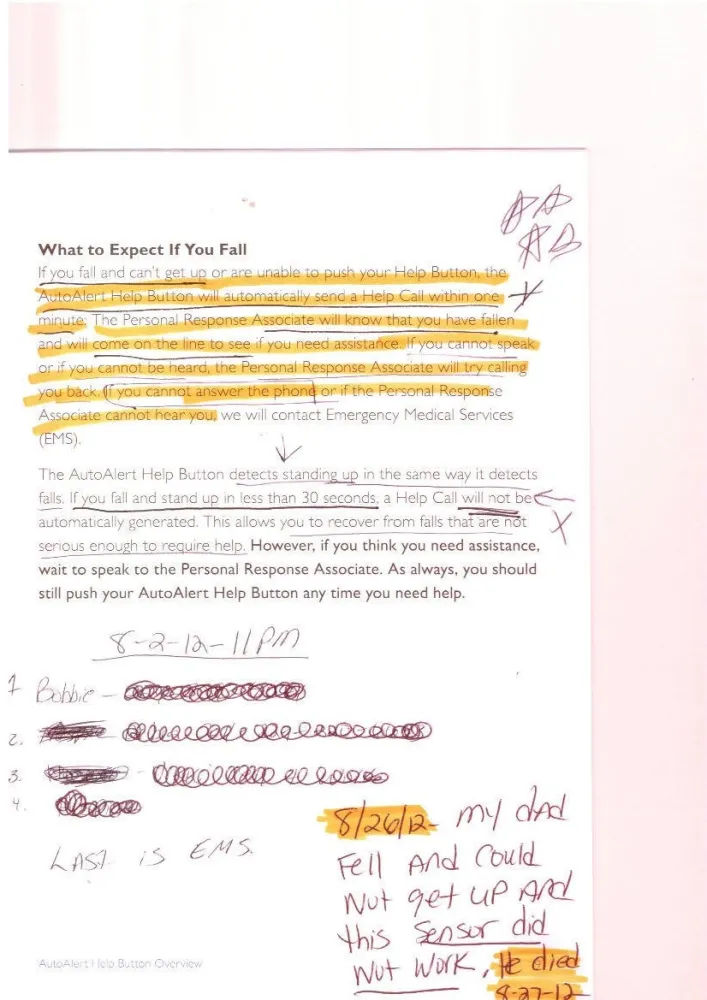 What to Expect If You Fall
If you fall and can't get up or are unable to push your Help Button, the
AutoAlert Help Button will automatically send a Help Call within one
minute. The Personal Response Associate will know that you have fallen
and will come on the line to see if you need assistance. If you cannot speak
or if you cannot be heard, the Personal Response Associate will try calling
you back. If you cannot answer the phone or if the Personal Response
Associate cannot hear you, we will contact Emergency Medical Services
(EMS).
The AutoAlert Help Button detects standing up in the same way it detects
falls. If you fall and stand up in less than 30 seconds, a Help Call will not be
automatically generated. This allows you to recover from falls that are not
serious enough to require help. However, if you think you need assistance,
wait to speak to the Personal Response Associate. As always, you should
still push your AutoAlert Help Button any time you need help.
8-2-12-11PM
1 Bobbie -
2.
3.
4.
LAST is EMS.
8/26/12- my dAd
Fell And Could
Not get up And
this Sensor did
Not Work, He died
8-27-12
AutoAlert Help Button Overview